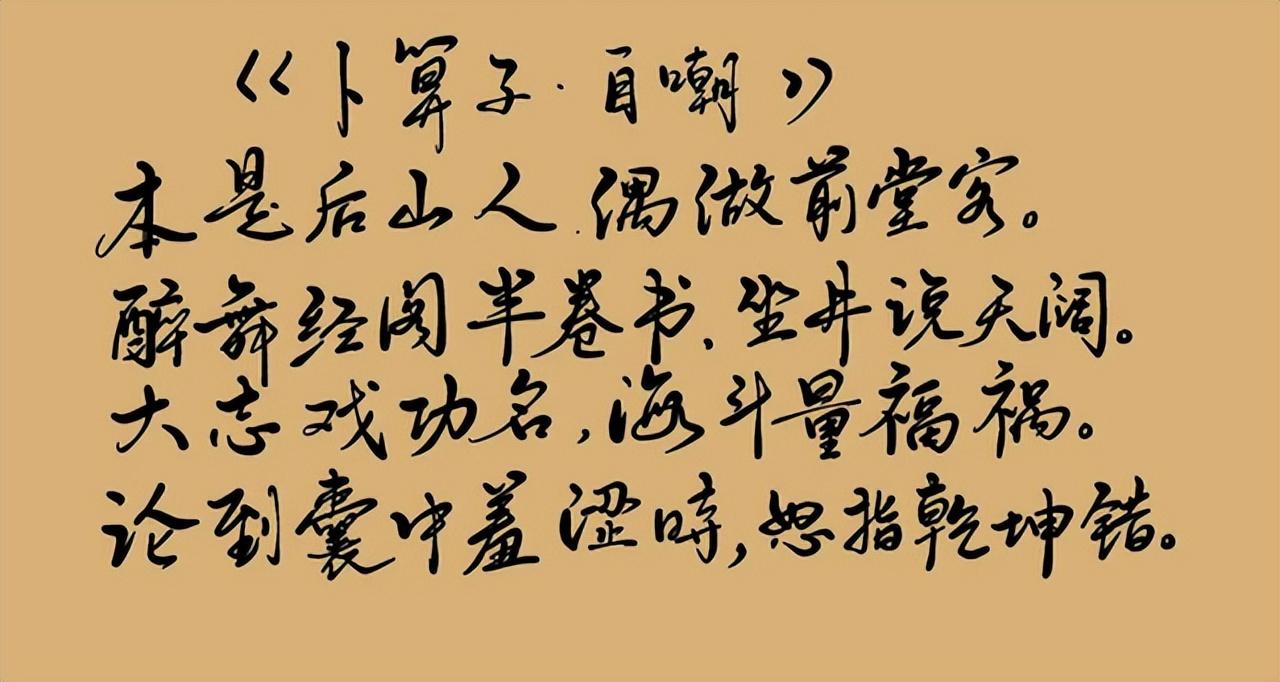 《卜算子·自嘲》
本是后山人.偶做前堂客。
醉舞经阁半卷书、坐井说天阔。
大志戏功名,海斗量福祸。
论到囊中羞涩时,怒指乾坤错。